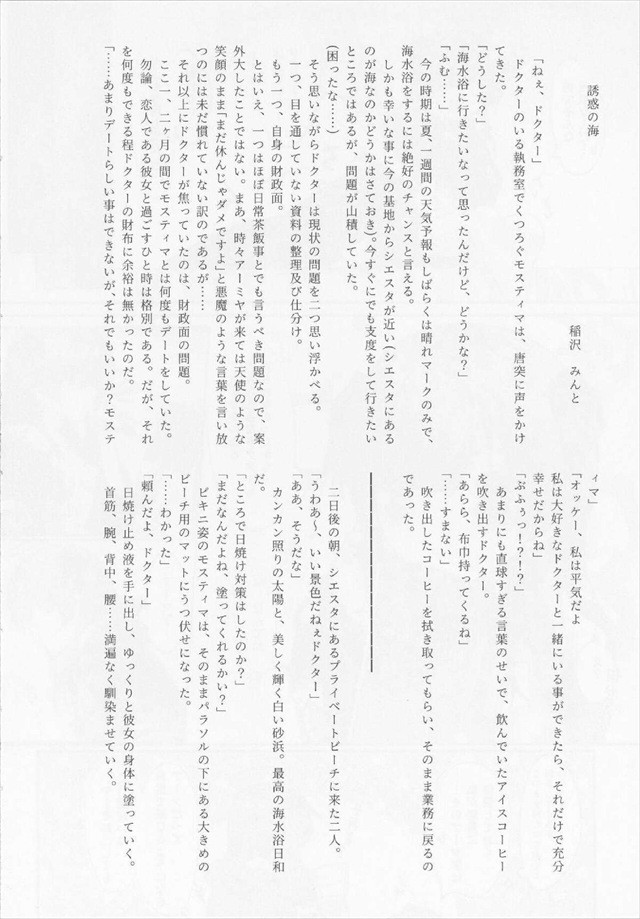 誘惑の海
稲沢　みんと
「ねぇ、ドクター」
ドクターのいる執務室でくつろぐモスティマは、唐突に声をかけ
てきた。
「どうした？」
「海水浴に行きたいなって思ったんだけど、どうかな？」
「ふむ……」
今の時期は夏、一週間の天気予報もしばらくは晴れマークのみで、
海水浴をするには絶好のチャンスと言える。
しかも幸いな事に今の基地からシエスタが近い(シエスタにある
のが海なのかどうかはさておき)。今すぐにでも支度をして行きたい
ところではあるが、問題が山積していた。
(困ったな……)
そう思いながらドクターは現状の問題を二つ思い浮かべる。
一つ、目を通していない資料の整理及び仕分け。
もう一つ、自身の財政面。
とはいえ、一つはほぼ日常茶飯事とでも言うべき問題なので、案
外大したことではない。まあ、時々アーミヤが来ては天使のような
笑顔のまま「まだ休んじゃダメですよ」と悪魔のような言葉を言い放
つのには未だ慣れていない訳のであるが……
それ以上にドクターが焦っていたのは、財政面の問題。
ここ一、二ヶ月の間でモスティマとは何度もデートをしていた。
勿論、恋人である彼女と過ごすひと時は格別である。だが、それ
を何度もできる程ドクターの財布に余裕は無かったのだ。
「……あまりデートらしい事はできないが、それでもいいか？モステ
ィマ」
「オッケー、私は平気だよ
私は大好きなドクターと一緒にいる事ができたら、それだけで充分
幸せだからね」
「ぶふぅっ！？！？」
あまりにも直球すぎる言葉のせいで、飲んでいたアイスコーヒー
を吹き出すドクター。
「あらら、布巾持ってくるね」
「……すまない」
吹き出したコーヒーを拭き取ってもらい、そのまま業務に戻るの
であった。
二日後の朝、シエスタにあるプライベートビーチに来た二人。
「うわあ〜、いい景色だねぇドクター」
「ああ、そうだな」
カンカン照りの太陽と、美しく輝く白い砂浜。最高の海水浴日和
だ。
「ところで日焼け対策はしたのか？」
「まだなんだよね、塗ってくれるかい？」
ビキニ姿のモスティマは、そのままパラソルの下にある大きめの
ビーチ用のマットにうつ伏せになった。
「……わかった」
「頼んだよ、ドクター」
日焼け止め液を手に出し、ゆっくりと彼女の身体に塗っていく。
首筋、腕、背中、腰……満遍なく馴染ませていく。